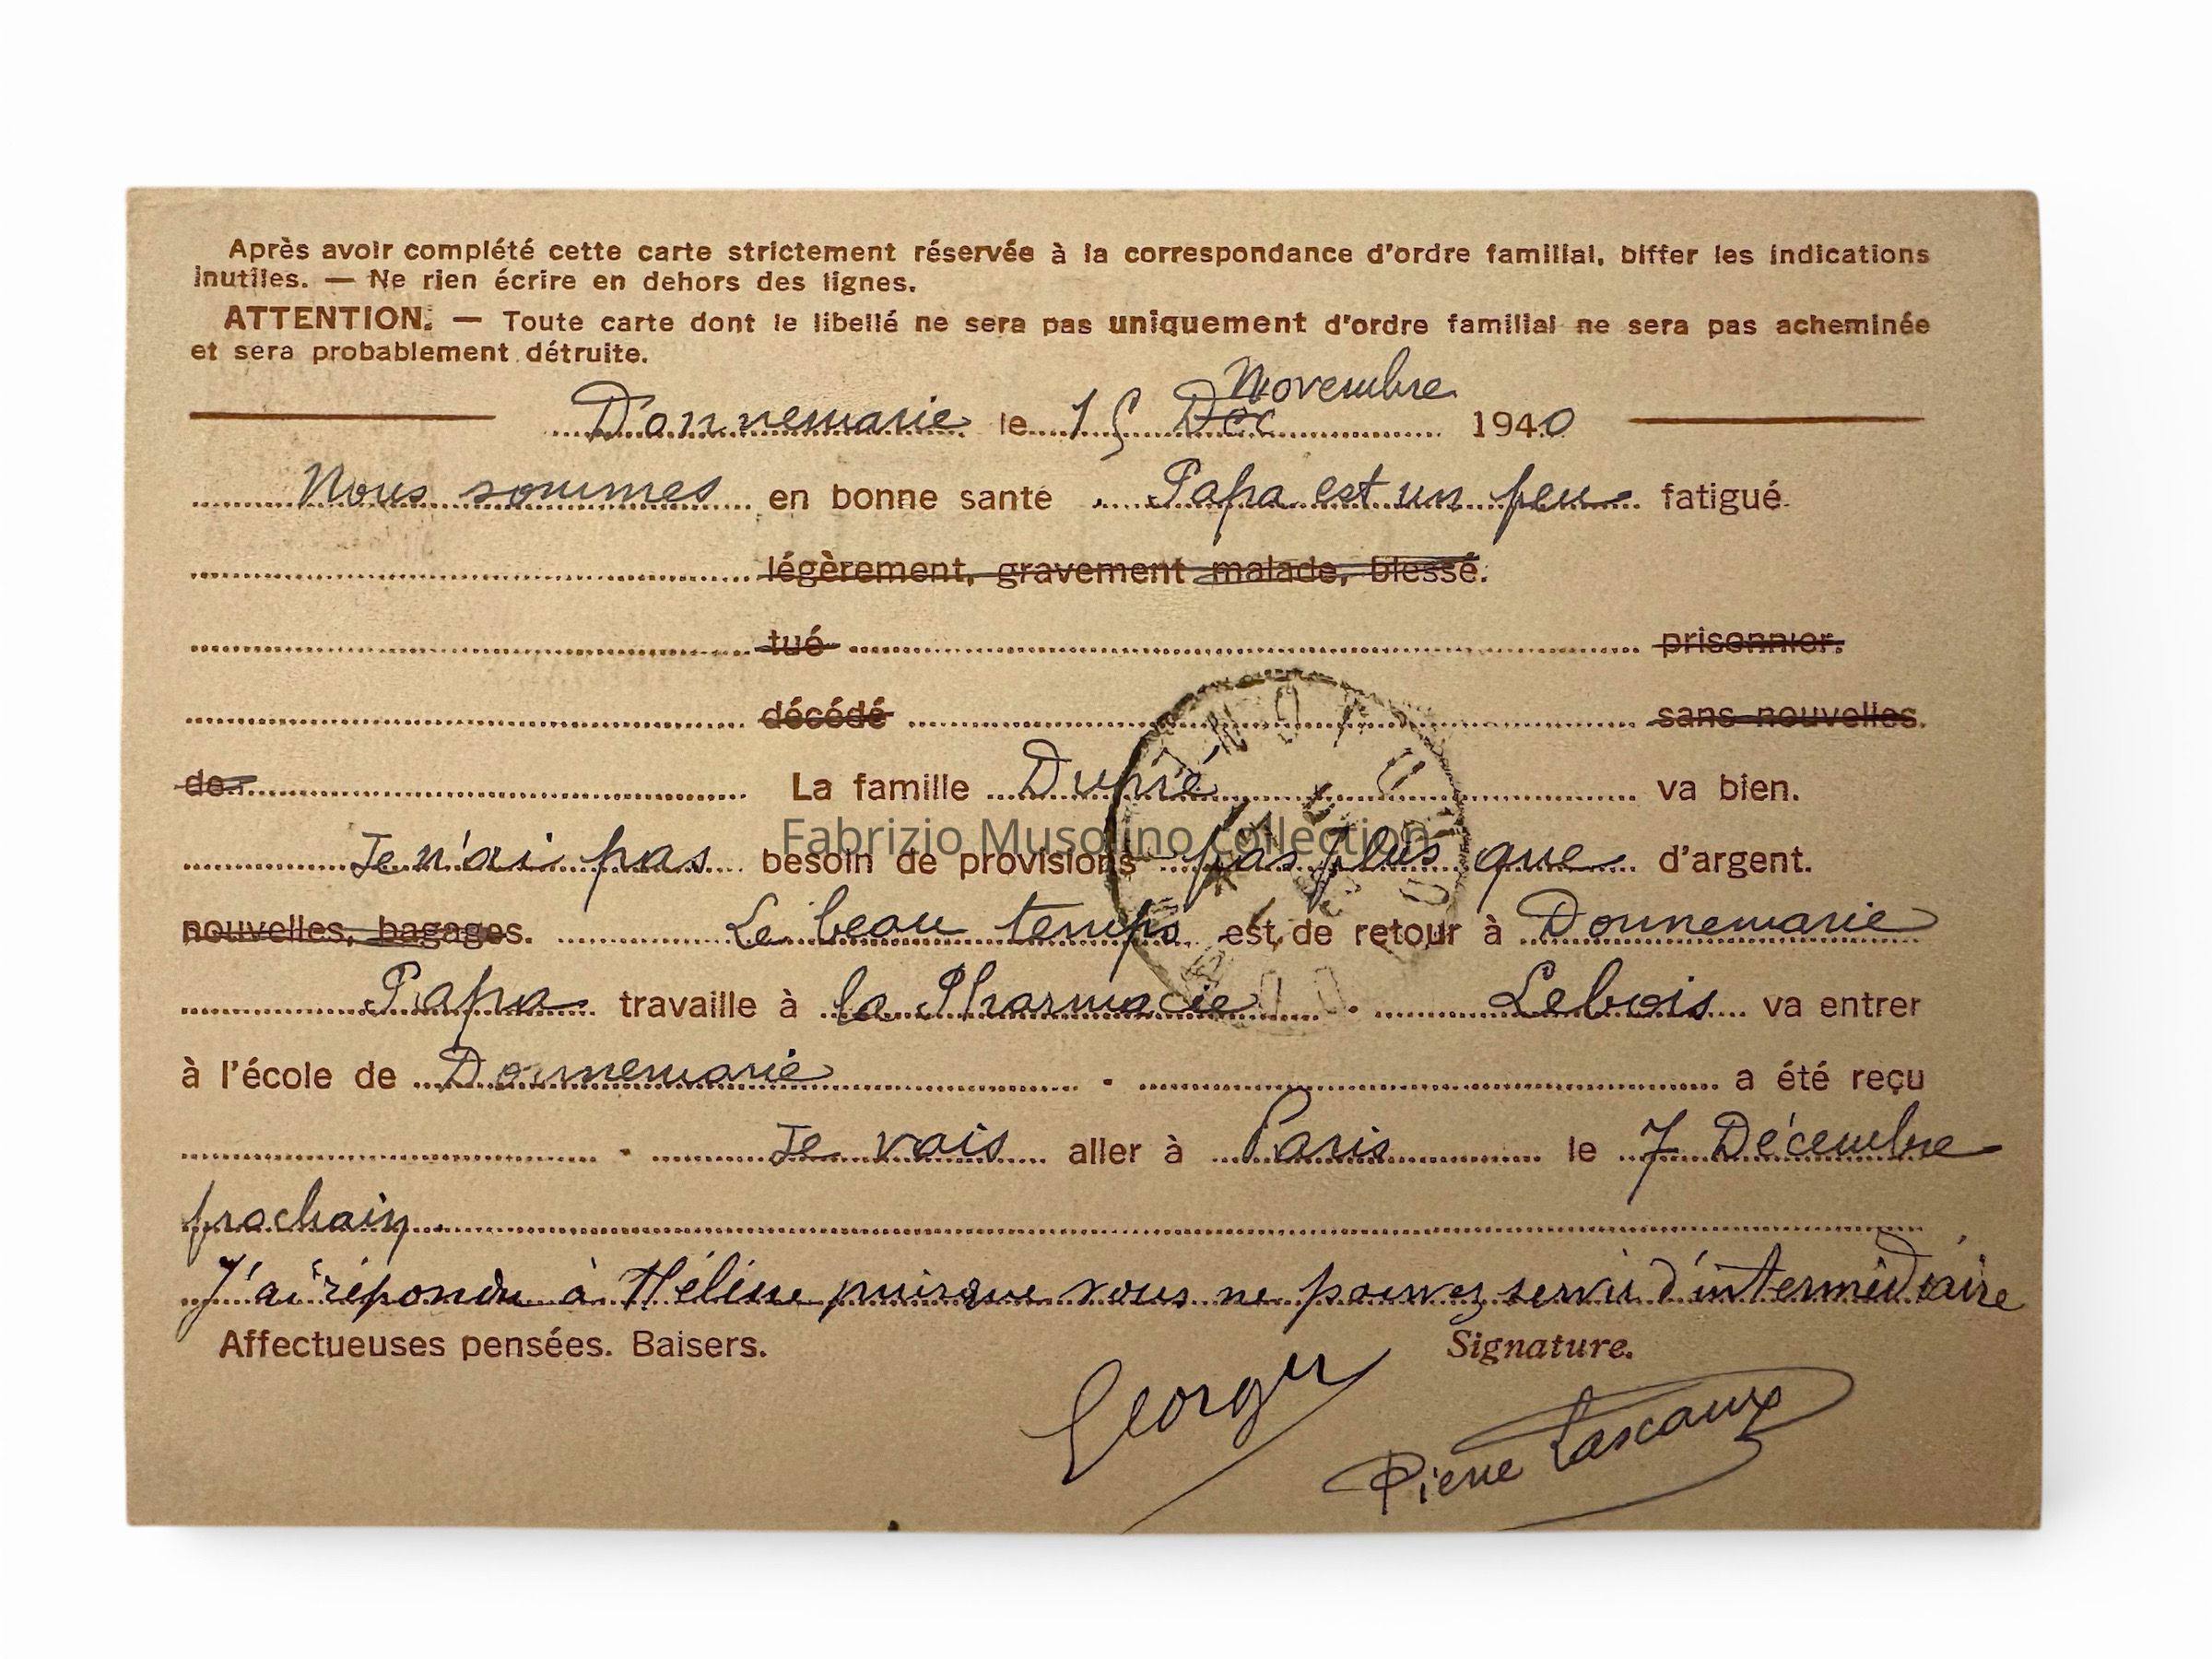 Après avoir complété cette carte strictement réservée à la correspondance d'ordre familial, biffer les indications
inutiles. — Ne rien écrire en dehors des lignes.
ATTENTION. — Toute carte dont le libellé ne sera pas uniquement d'ordre familial ne sera pas acheminée
et sera probablement détruite.
Novembre
Donnemarie le 15 Dec 1940
Nous sommes en bonne santé . Papa est un peu fatigué.
légèrement, gravement malade, blessé.
tué prisonnier.
décédé sans nouvelles.
de La famille Dupré va bien.
Fabrizio Musolino collection
Je n'ai pas besoin de provisions pas plus que d'argent.
nouvelles, bagages. Le beau temps est de retour à Donnemarie
Papa travaille à la Pharmacie . Lebois va entrer
à l'école de Donnemarie . a été reçu
. Je vais aller à Paris le 7 Décembre
prochain.
J'ai répondu à Hélène puisque vous ne pouvez servir d'intermédiaire
Affectueuses pensées. Baisers. Signature.
Georges
Pierre Lascaux